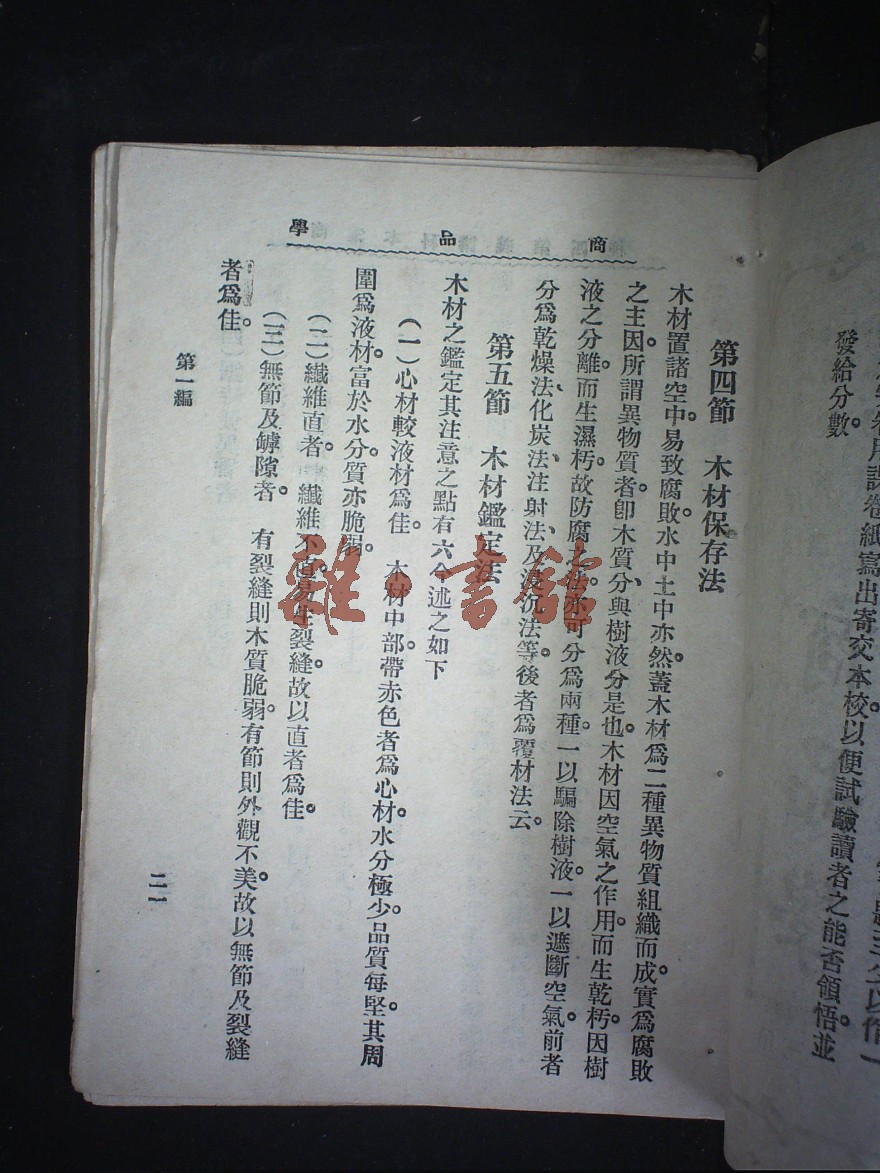 發給分數。
出寄交本校。以便試驗讀者之能否領悟。並
商品學
第四節　木材保存法
木材置諸空中。易致腐敗。水中土中亦然。蓋木材爲二種異物質組織而成。實爲腐敗
之主因。所謂異物質者。卽木質分與樹液分是也。木材因空氣之作用。而生乾朽。因樹
液之分離。而生濕朽。故防腐之法。亦可分爲兩種。一以驅除樹液。一以遮斷空氣。前者
分爲乾燥法、化炭法、注射法、及浸沉法等。後者爲覆材法云。
第五節　木材鑑定法
木材之鑑定其注意之點有六今述之如下
（一）心材較液材爲佳。　木材中部。帶赤色者爲心材。水分極少。品質每堅。其周
圍爲液材。富於水分。質亦脆弱。
（二）纖維直者。　纖維不直。易生裂縫。故以直者爲佳。
（三）無節及罅隙者。　有裂縫則木質脆弱。有節則外觀不美。故以無節及裂縫
者爲佳。
第一編
二一
雜·書館